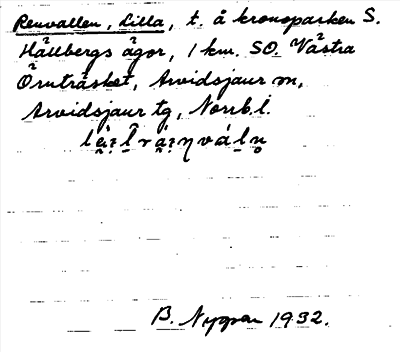 Renvallen, Lilla, t. å kronoparken S.
Hällbergs ägor, 1 km. SO. Västra
Örnträsket, Arvidsjaur sn,
Arvidsjaur tg, Norrb. l.
B. Nygren 1932.